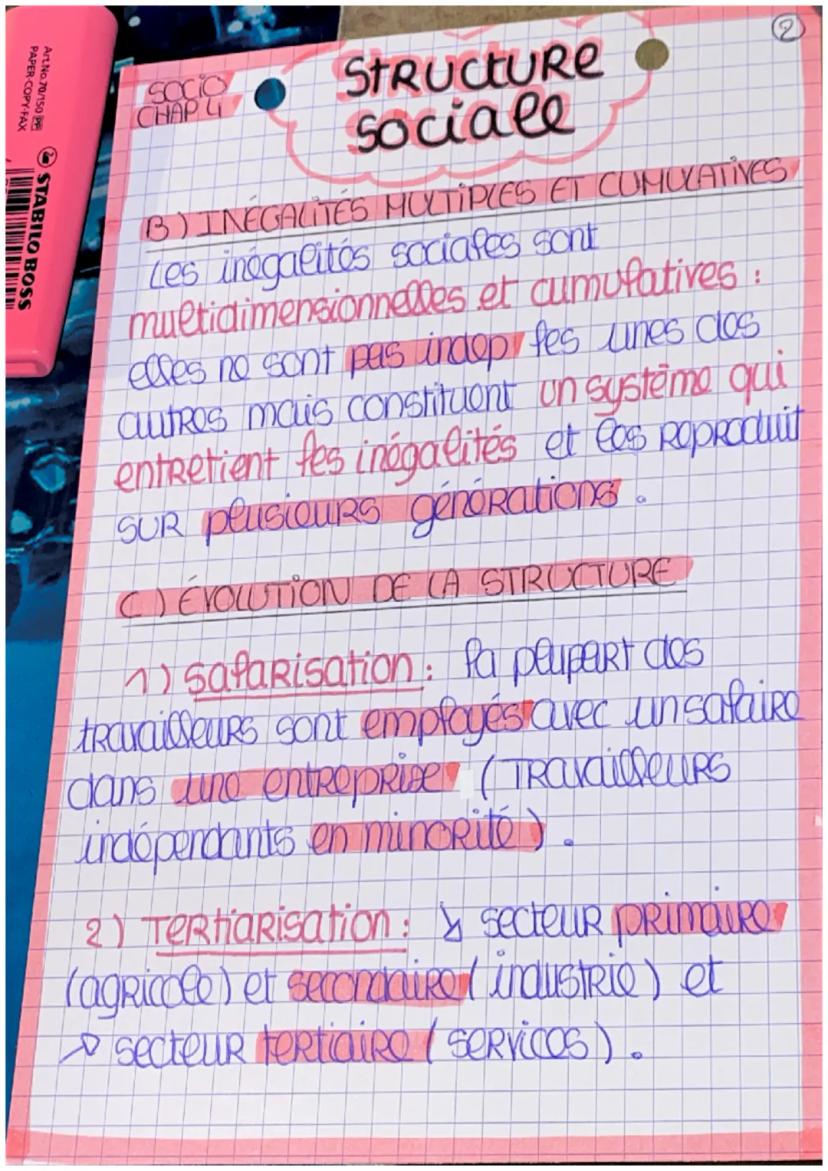 ②
SOCIO
CHAP 4
STRUCTURE
sociale
B) INÉGALITÉS MULTIPLES ET CUMULATIVES
Les inégalités sociales sont
multidimensionnelles et cumulatives :
elles ne sont pas indep les unes des
autres mais constituent un système qui
entretient les inégalités et les reproduit
sur plusieurs générations.
C) ÉVOLUTION DE LA STRUCTURE
1) Salarisation : la plupart des
travailleurs sont employés avec un salaire
dans une entreprise (travailleurs
indépendants en minorité).
2) Tertiarisation : ↘ secteur primaire
(agricole) et secondaire (industrie) et
↗ secteur tertiaire (services).
Art.No.70/150
PAPER-COPY-FAX
STABILO BOSS